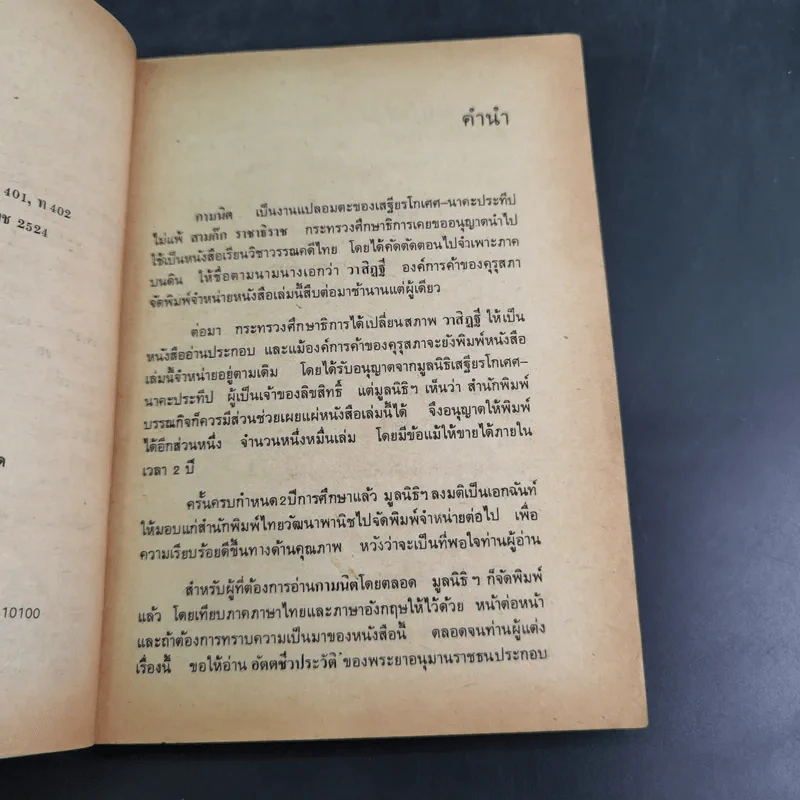 401, ท 402
ช 2524
ด
10100
คำนำ
กามนิต เป็นงานแปลอมตะของเสฐียรโกเศศ–นาคะประทีป
ไม่แพ้ สามก๊ก ราชาธิราช กระทรวงศึกษาธิการเคยขออนุญาตนำไป
ใช้เป็นหนังสือเรียนวิชาวรรณคดีไทย โดยได้คัดตัดตอนไปจำเพาะภาค
บนดิน ให้ชื่อตามนามนางเอกว่า วาสิฏฐี องค์การค้าของคุรุสภา
จัดพิมพ์จำหน่ายหนังสือเล่มนี้สืบต่อมาช้านานแต่ผู้เดียว
ต่อมา กระทรวงศึกษาธิการได้เปลี่ยนสภาพ วาสิฏฐี ให้เป็น
หนังสืออ่านประกอบ และแม้องค์การค้าของคุรุสภาจะยังพิมพ์หนังสือ
เล่มนี้จำหน่ายอยู่ตามเดิม โดยได้รับอนุญาตจากมูลนิธิเสฐียรโกเศศ–
นาคะประทีป ผู้เป็นเจ้าของลิขสิทธิ์ แต่มูลนิธิฯ เห็นว่า สำนักพิมพ์
บรรณกิจก็ควรมีส่วนช่วยเผยแผ่หนังสือเล่มนี้ได้ จึงอนุญาตให้พิมพ์
ได้อีกส่วนหนึ่ง จำนวนหนึ่งหมื่นเล่ม โดยมีข้อแม้ให้ขายได้ภายใน
เวลา 2 ปี
ครั้นครบกำหนด 2 ปีการศึกษาแล้ว มูลนิธิฯ ลงมติเป็นเอกฉันท์
ให้มอบแก่สำนักพิมพ์ไทยวัฒนาพานิชไปจัดพิมพ์จำหน่ายต่อไป เพื่อ
ความเรียบร้อยดีขึ้นทางด้านคุณภาพ หวังว่าจะเป็นที่พอใจท่านผู้อ่าน
สำหรับผู้ที่ต้องการอ่านกามนิตโดยตลอด มูลนิธิ ฯ ก็จัดพิมพ์
แล้ว โดยเทียบภาคภาษาไทยและภาษาอังกฤษให้ไว้ด้วย หน้าต่อหน้า
และถ้าต้องการทราบความเป็นมาของหนังสือนี้ ตลอดจนท่านผู้แต่ง
เรื่องนี้ ขอให้อ่าน อัตตชีวประวัติ ของพระยาอนุมานราชธนประกอบ